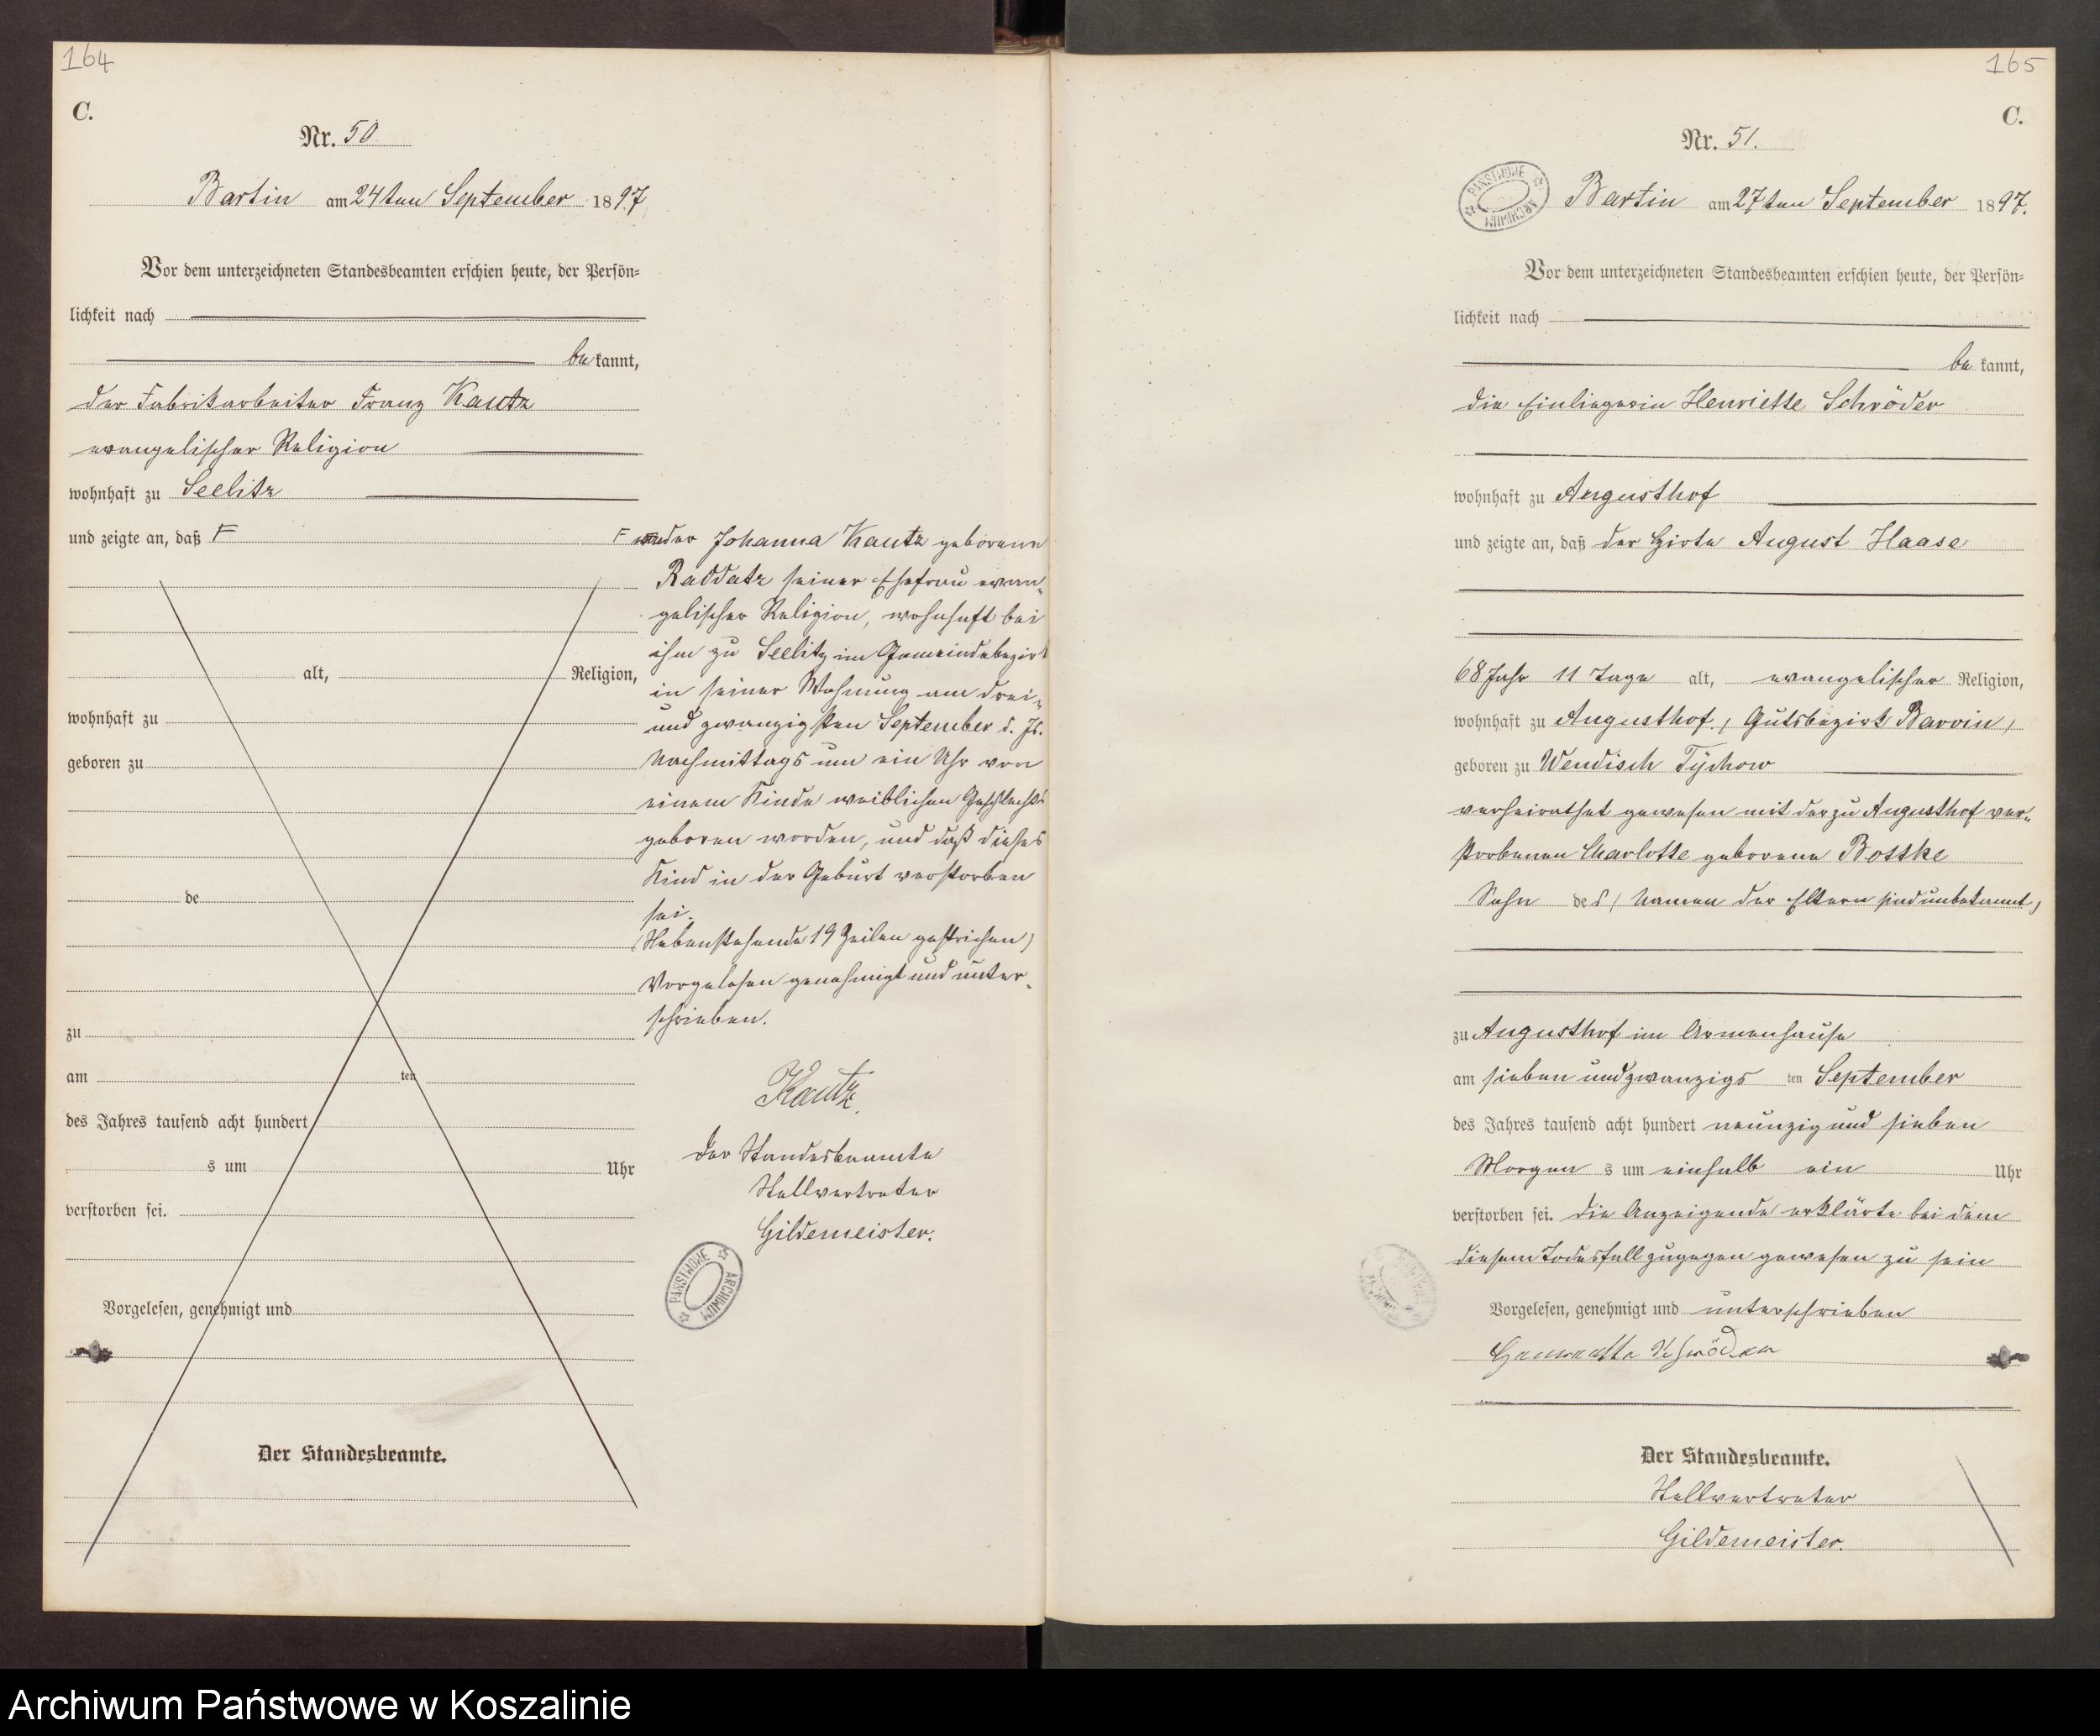 164
C.
Nr. 50
Bartin am 24ten September 1897
Vor dem unterzeichneten Standesbeamten erschien heute, der Persön=
lichkeit nach
bekannt,
der Fabrikarbeiter Franz Kautz
evangelischer Religion
wohnhaft zu Seelitz
und zeigte an, daß F
alt, Religion,
wohnhaft zu
geboren zu
de
zu
am ten
des Jahres tausend acht hundert
s um Uhr
verstorben sei.
Vorgelesen, genehmigt und
Der Standesbeamte.
F von der Johanna Kautz geborene
Raddatz seiner Ehefrau evan=
gelischer Religion, wohnhaft bei
ihm zu Seelitz im Gemeindebezirk
in seiner Wohnung am drei=
und zwanzigsten September d. Js.
Nachmittags um ein Uhr von
einem Kinde weiblichen Geschlechts
geboren worden, und daß dieses
Kind in der Geburt verstorben
sei.
(Nebenstehende 19 Zeilen gestrichen)
Vorgelesen genehmigt und unter=
schrieben.
Kautz.
Der Standesbeamte
Stellvertreter
Gildemeister.
PAŃSTWOWE ARCHIWUM
165
C.
Nr. 51.
PAŃSTWOWE ARCHIWUM
Bartin am 27ten September 1897.
Vor dem unterzeichneten Standesbeamten erschien heute, der Persön=
lichkeit nach
bekannt,
die Einliegerin Henriette Schröder
wohnhaft zu Augusthof
und zeigte an, daß der Hirte August Haase
68 Jahr 11 Tage alt, evangelischer Religion,
wohnhaft zu Augusthof, (Gutsbezirk Barvin)
geboren zu Wendisch Tychow
verheirathet gewesen mit der zu Augusthof ver=
storbenen Charlotte geborene Bottke
Sohn des (Namen der Eltern sind unbekannt)
zu Augusthof im Armenhause
am sieben und zwanzigsten September
des Jahres tausend acht hundert neunzig und sieben
Morgens um einhalb ein Uhr
verstorben sei. Die Anzeigende erklärte bei dem
diesem Todesfall zugegen gewesen zu sein
Vorgelesen, genehmigt und unterschrieben
Henriette Schröder
Der Standesbeamte.
Stellvertreter
Gildemeister.
Archiwum Państwowe w Koszalinie